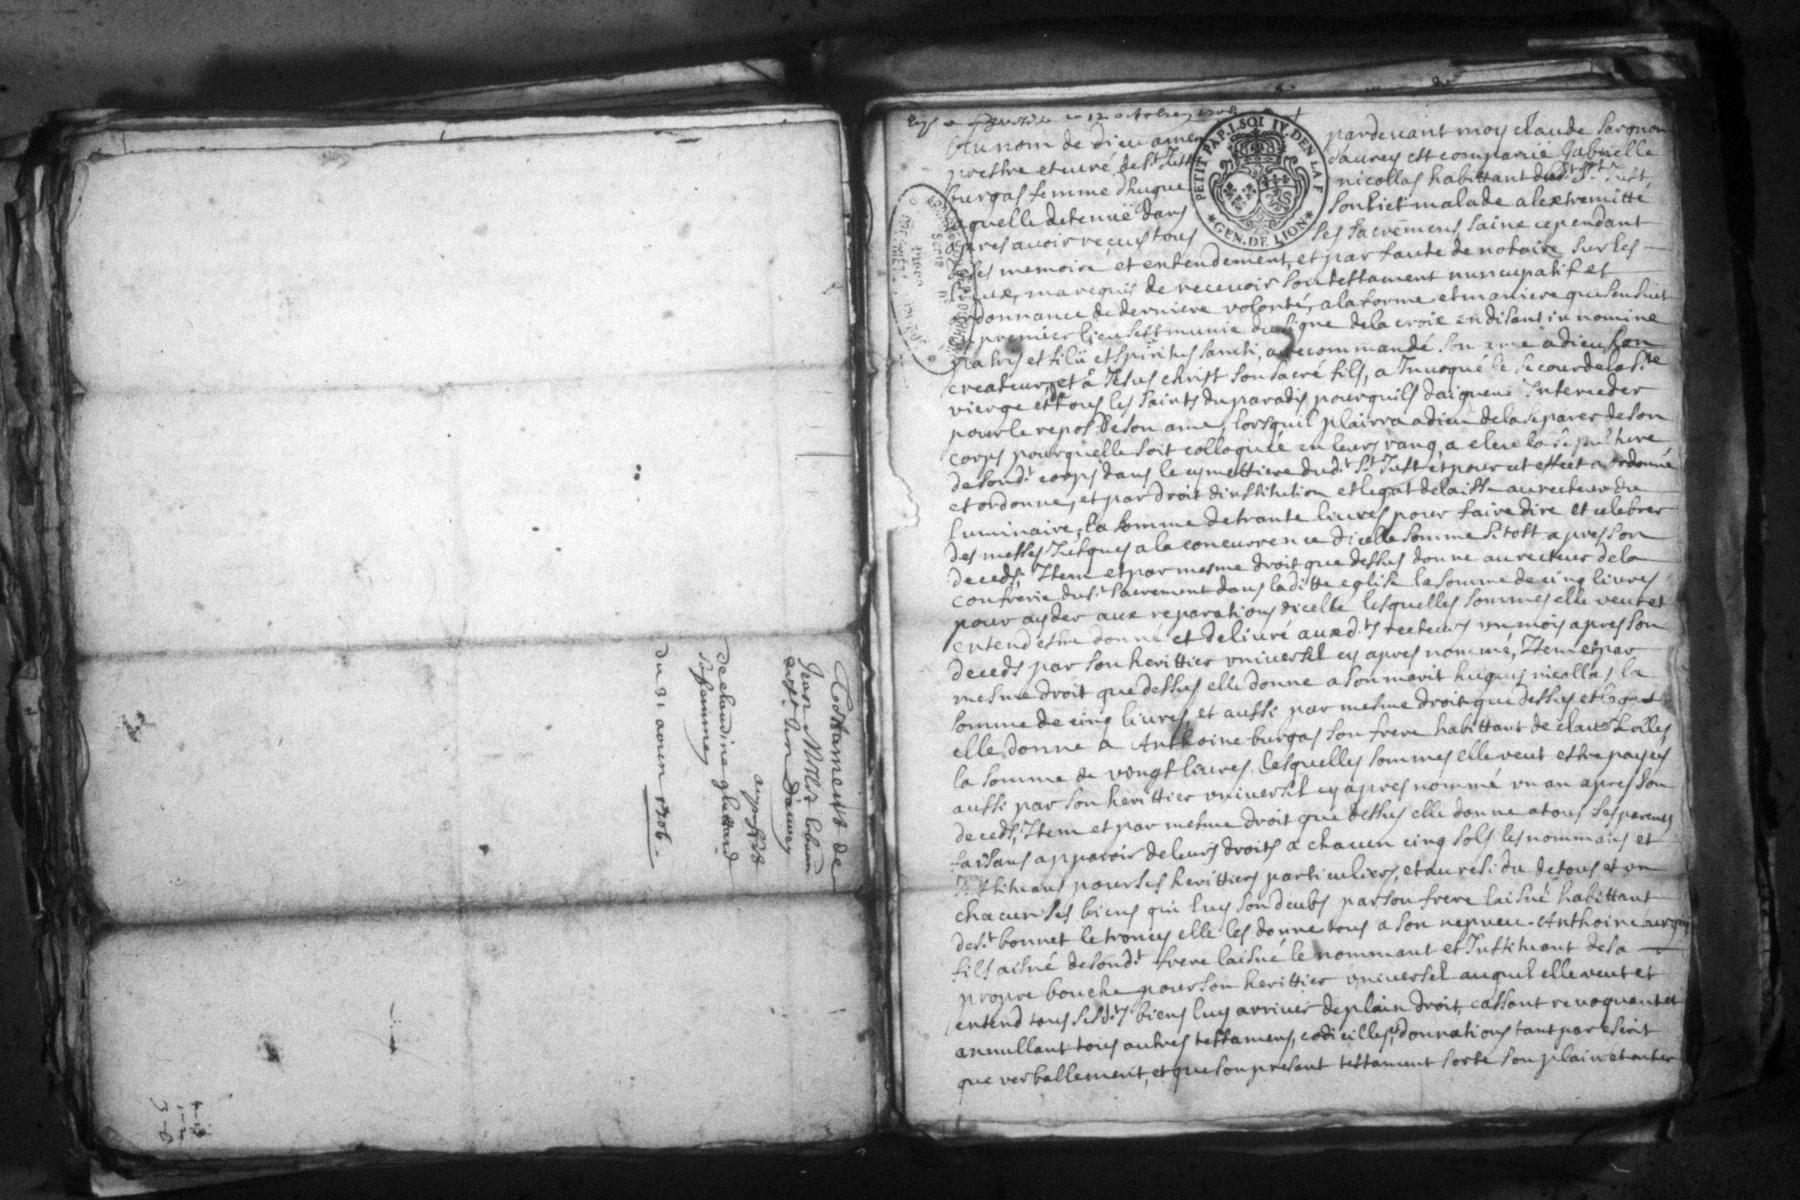 Testament de
Jean
Dauvey
de claudine
du 31 aoux 1706
PETIT PAP. 1. SOL IV. DEN LA F.
★ GEN. DE LION ★
Au nom de dieu amen pardevant moy claude
prestre et curé de St Just d'aurey est comparüe Gabrielle
burgas femme d'hugue nicollas habittant dudt St Just
laquelle detenuë dans son lict malade a lextremitté
apres avoir reçeus tous ses sacremens, saine cependant
de ses memoire et entendement, et par faute de notaire sur les
lieux, ma requis de recevoir son testtament nuncupatif et
ordonnance de derniere volonté, a la forme et maniere que sensuit
premierlieu sest munie du signe de la croix en disant in nomine
patris et filii et spiritus sancti, a recommandé son ame à dieu son
createur, et à Jesus christ son sacré fils, a Invoqué le secour de la Ste
vierge et tous les saints du paradis pourquils daignent Interceder
pour le repos de son ame, lorsquil plairra a dieu de la separer de son
corps pourquelle soit colloquée en leurs rang, a eleu la sepulthure
de sondt corps dans le cymettiere dudt St Just et pour cet effect a ordonné
et ordonne, et par droit dinstitution et legat delaisse au recteur du
luminaire, la somme de trante livres pour faire dire et celebrer
des messes Jusques a la concurrence dicelle somme sitost apres son
deceds, Item et par mesme droit que dessus donne au recteur de la
confrerie du St sacrement dans laditte eglise la somme de cinq livres
pour ayder aux reparations dicelle lesquelles sommes elle veut et
entend estre donné et delivré auxdts recteurs un mois apres son
deceds par son herittier universel cy apres nommé, Item et par
mesme droit que dessus elle donne a son marit hugues nicollas la
somme de cinq livres, et aussi par mesme droit que dessus et legat
elle donne a Anthoine burgas son frere habittant de
la somme de vingt livres, lesquelles sommes elle veut estre payées
aussi par son herittier universel cy apres nommé un an apres son
deceds, Item et par mesme droit que dessus elle donne a tous ses parents
faisans apparoir de leurs droits a chacun cinq sols les nommans et
Instituans pour ses herittiers particuliers, et au residu de tous et un
chacun ses biens qui luy son deubs par son frere laisné habittant
de St bonnet le troncy elle les donne tous a son nepveu Anthoine burgas
fils aisné de sondt frere laisné le nommant et Instituant de sa
propre bouche pour son herittier universel auquel elle veut et
entend tous sesdts biens luy arriver de plain droit, cassant revoquant et
annullant tous autres testtamens, codicilles, donnations tant par escrit
que verballement, et que son present testtament sorte son plain et entier